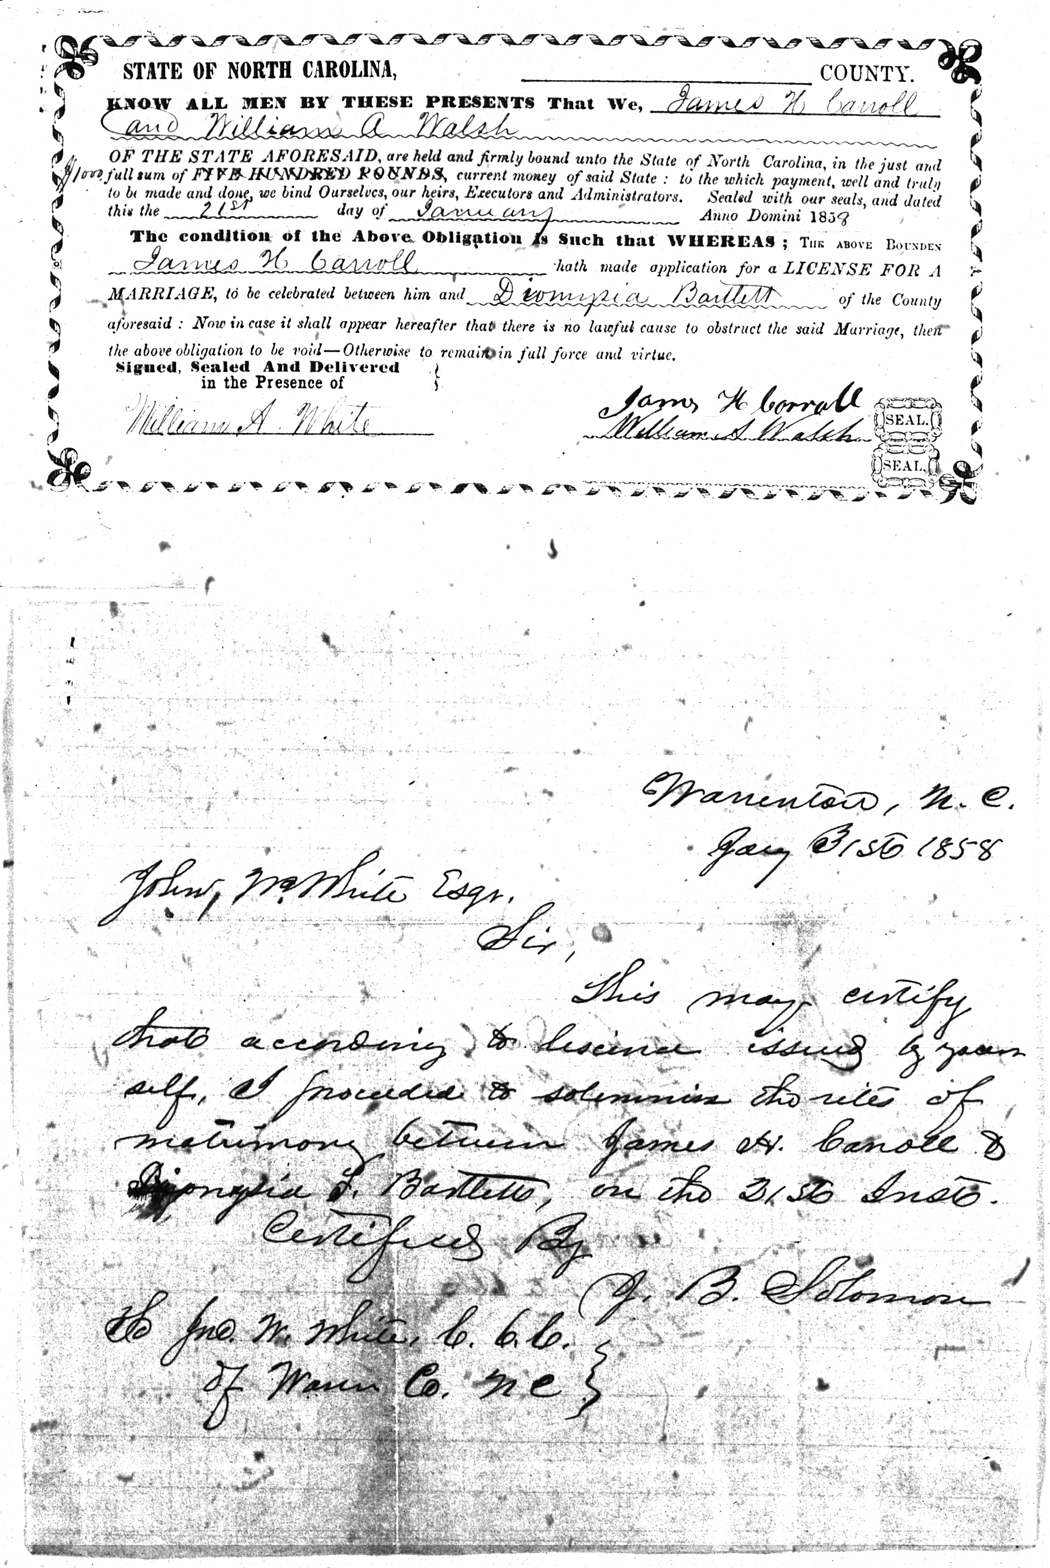 STATE OF NORTH CAROLINA, COUNTY.
KNOW ALL MEN BY THESE PRESENTS That We, James H Carroll
and William A Walsh
OF THE STATE AFORESAID, are held and firmly bound unto the State of North Carolina, in the just and
$1000 full sum of FIVE HUNDRED POUNDS, current money of said State : to the which payment, well and truly
to be made and done, we bind Ourselves, our heirs, Executors and Administrators. Sealed with our seals, and dated
this the 21st day of January Anno Domini 1858
The condition of the Above Obligation is Such that WHEREAS ; THE ABOVE BOUNDEN
James H Carroll hath made application for a LICENSE FOR A
MARRIAGE, to be celebrated between him and Dionysia Bartlett of the County
aforesaid : Now in case it shall appear hereafter that there is no lawful cause to obstruct the said Marriage, then
the above obligation to be void—Otherwise to remain in full force and virtue.
Signed, Sealed And Delivered
in the Presence of
William A. White
James H Carroll SEAL.
William A Walsh
SEAL.
Warrenton, N. C.
Jany 31st 1858
John, W. White Esqr.
Sir,
This may certify
that according to liscence issued by your
self, I proceeded to solemnize the rites of
matrimony between James H. Carroll &
Dionysia F. Bartlett, on the 21st Inst.
Certified By
J. B. Solomon
To Jno. W. White, C. C. C.
of Warren Co. N C